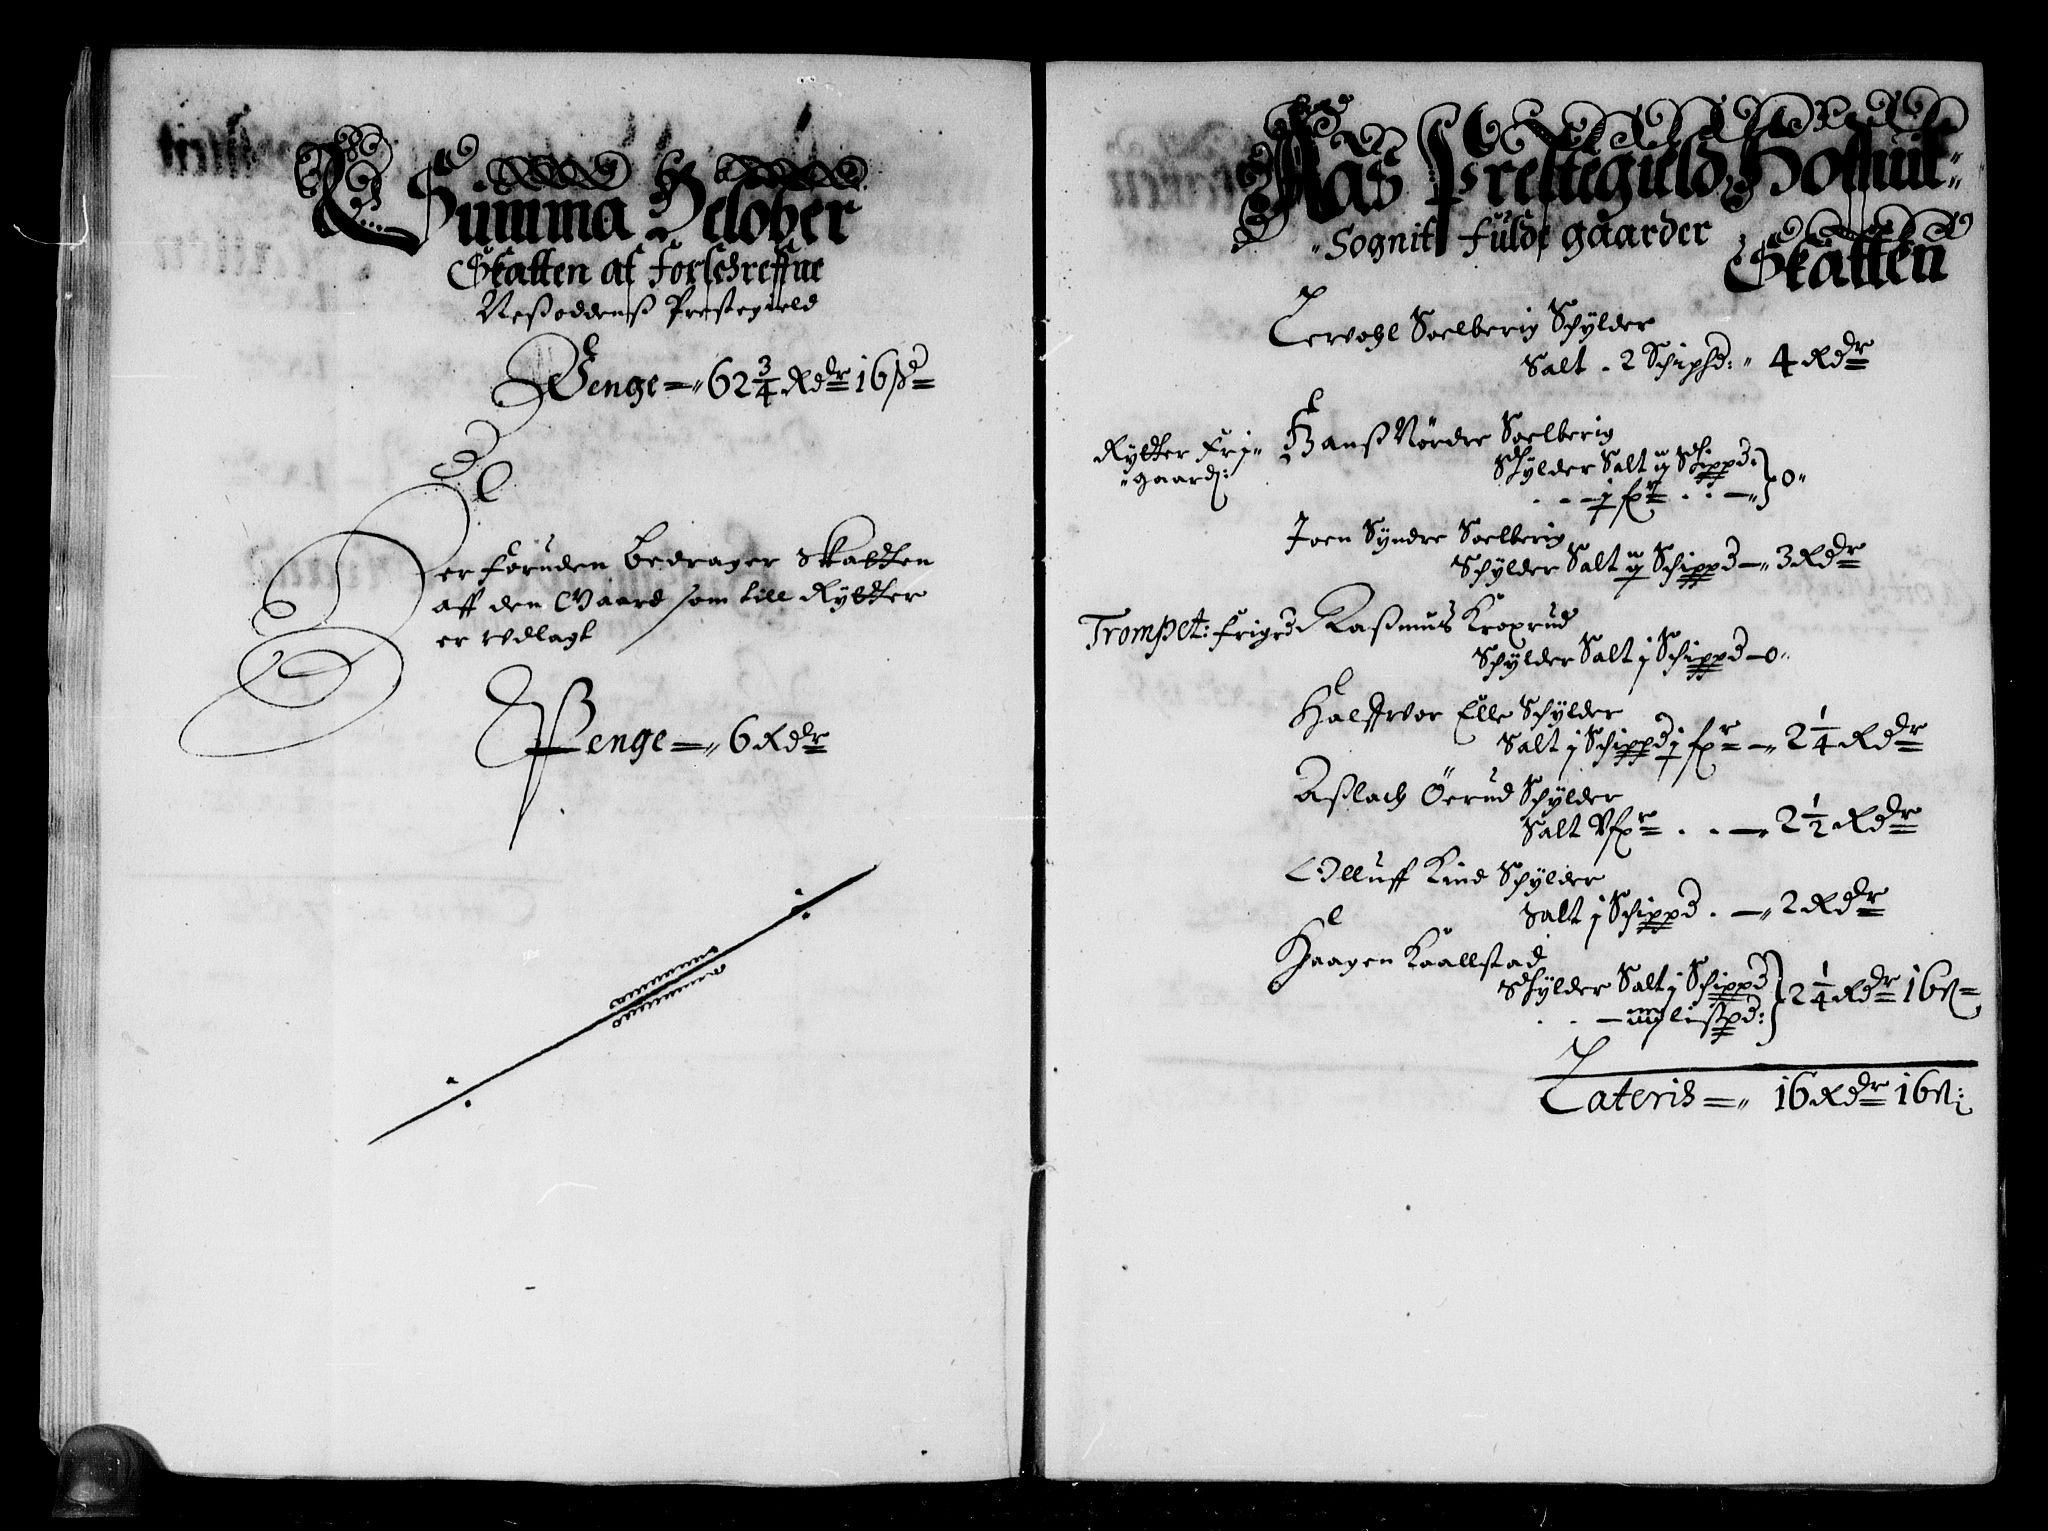 Summa Beløber
Skatten af Forschreffne
Nesoddens Prestegield
Penge = 62 3/4 Rdr 16 ß
Der foruden bedrager Skatten
aff den Gaard som till Rytter
er vdlagt
Penge = 6 Rdr
Aas Prestegield, Hoffuit-
Sognit Fulde gaarder
Skatten
Tervohl Soelberig Schylder
Salt . 2 Schipd: 4 Rdr
Rytter Frj- Hanß Nørdre Soelberig
gaard: Schylder Salt ij Schippd:
j fxr . . — 0
Joen Syndre Soelberig
Schylder Salt ij Schippd — 3 Rdr
Trompet: frigrd Raßmus Kroxrud
Schylder Salt j Schippd — 0
Halffvor Elle Schylder
Salt j Schippd j fxr — 2 1/4 Rdr
Aßlach Öerud Schylder
Salt V fxr . . — 2 1/2 Rdr
Olluff Kind Schylder
Salt j Schippd . — 2 Rdr
Haagen Kaallstad
Schylder Salt j Schippd 2 1/4 Rdr 16 ß
. . — iiij lispd:
Lateris = 16 Rdr 16 ß: